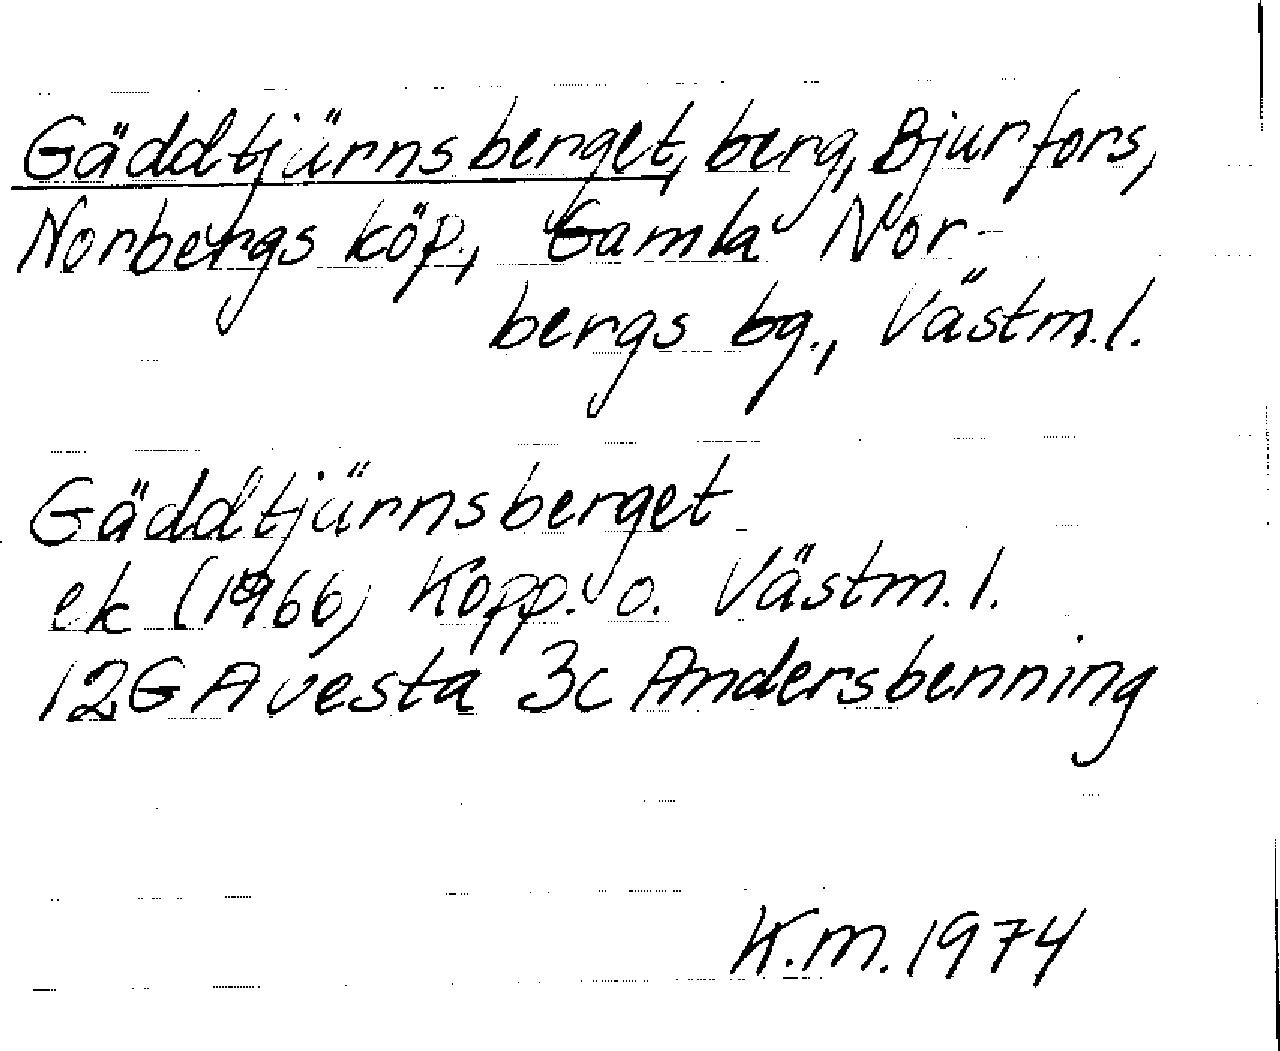 Gäddtjärnsberget, berg, Bjurfors,
Norbergs köp., Gamla Nor-
bergs bg., Västm.l.
Gäddtjärnsberget
ek (1966) Kopp. o. Västm.l.
12G Avesta 3c Andersbenning
K.m. 1974